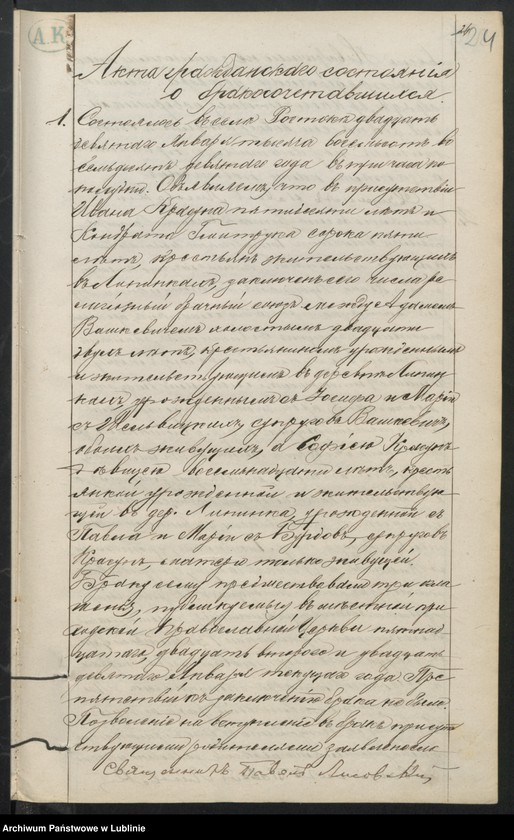 24
А К
Акта гражданскаго состоянія
о бракосочетавшихся.
1. Состоялось въ селѣ двадцать
девятаго Января тысяча восемьсотъ во
семьдесятъ девятаго года въ три часа по
полудни. Объявляемъ, что въ присутствіи
Ивана Красуна пятидесяти лѣтъ и
Кондрата сорока пяти
лѣтъ, крестьянъ жительствующихъ
въ заключенъ сего числа ре
лигіозный брачный союзъ между Адамомъ
Вашкевичемъ холостымъ двадцати
двухъ лѣтъ, крестьяниномъ урожденнымъ
и жительствующимъ въ деревнѣ Липин
кахъ, урожденнымъ съ Іосифа и Маріи
съ супруговъ Вашкевичъ,
обоихъ живущихъ, а Софіею Красунъ
дѣвицею восемнадцати лѣтъ, кресть
янкой урожденной и жительствую
щей въ дер. Липинка, урожденной съ
Павла и Маріи съ супруговъ
Красунъ, матери только живущей.
Браку сему предшествовали три огла
шенія, публикуемыя въ мѣстной при
ходской Православной Церкви пятнад
цатаго, двадцать втораго и двадцать
девятаго Января текущаго года Пре
пятствій къ заключенію брака не было
Позволеніе на вступленіе въ бракъ присут
ствующими родителями заявлено
Священникъ Павелъ Лисовскій
Archiwum Państwowe w Lublinie